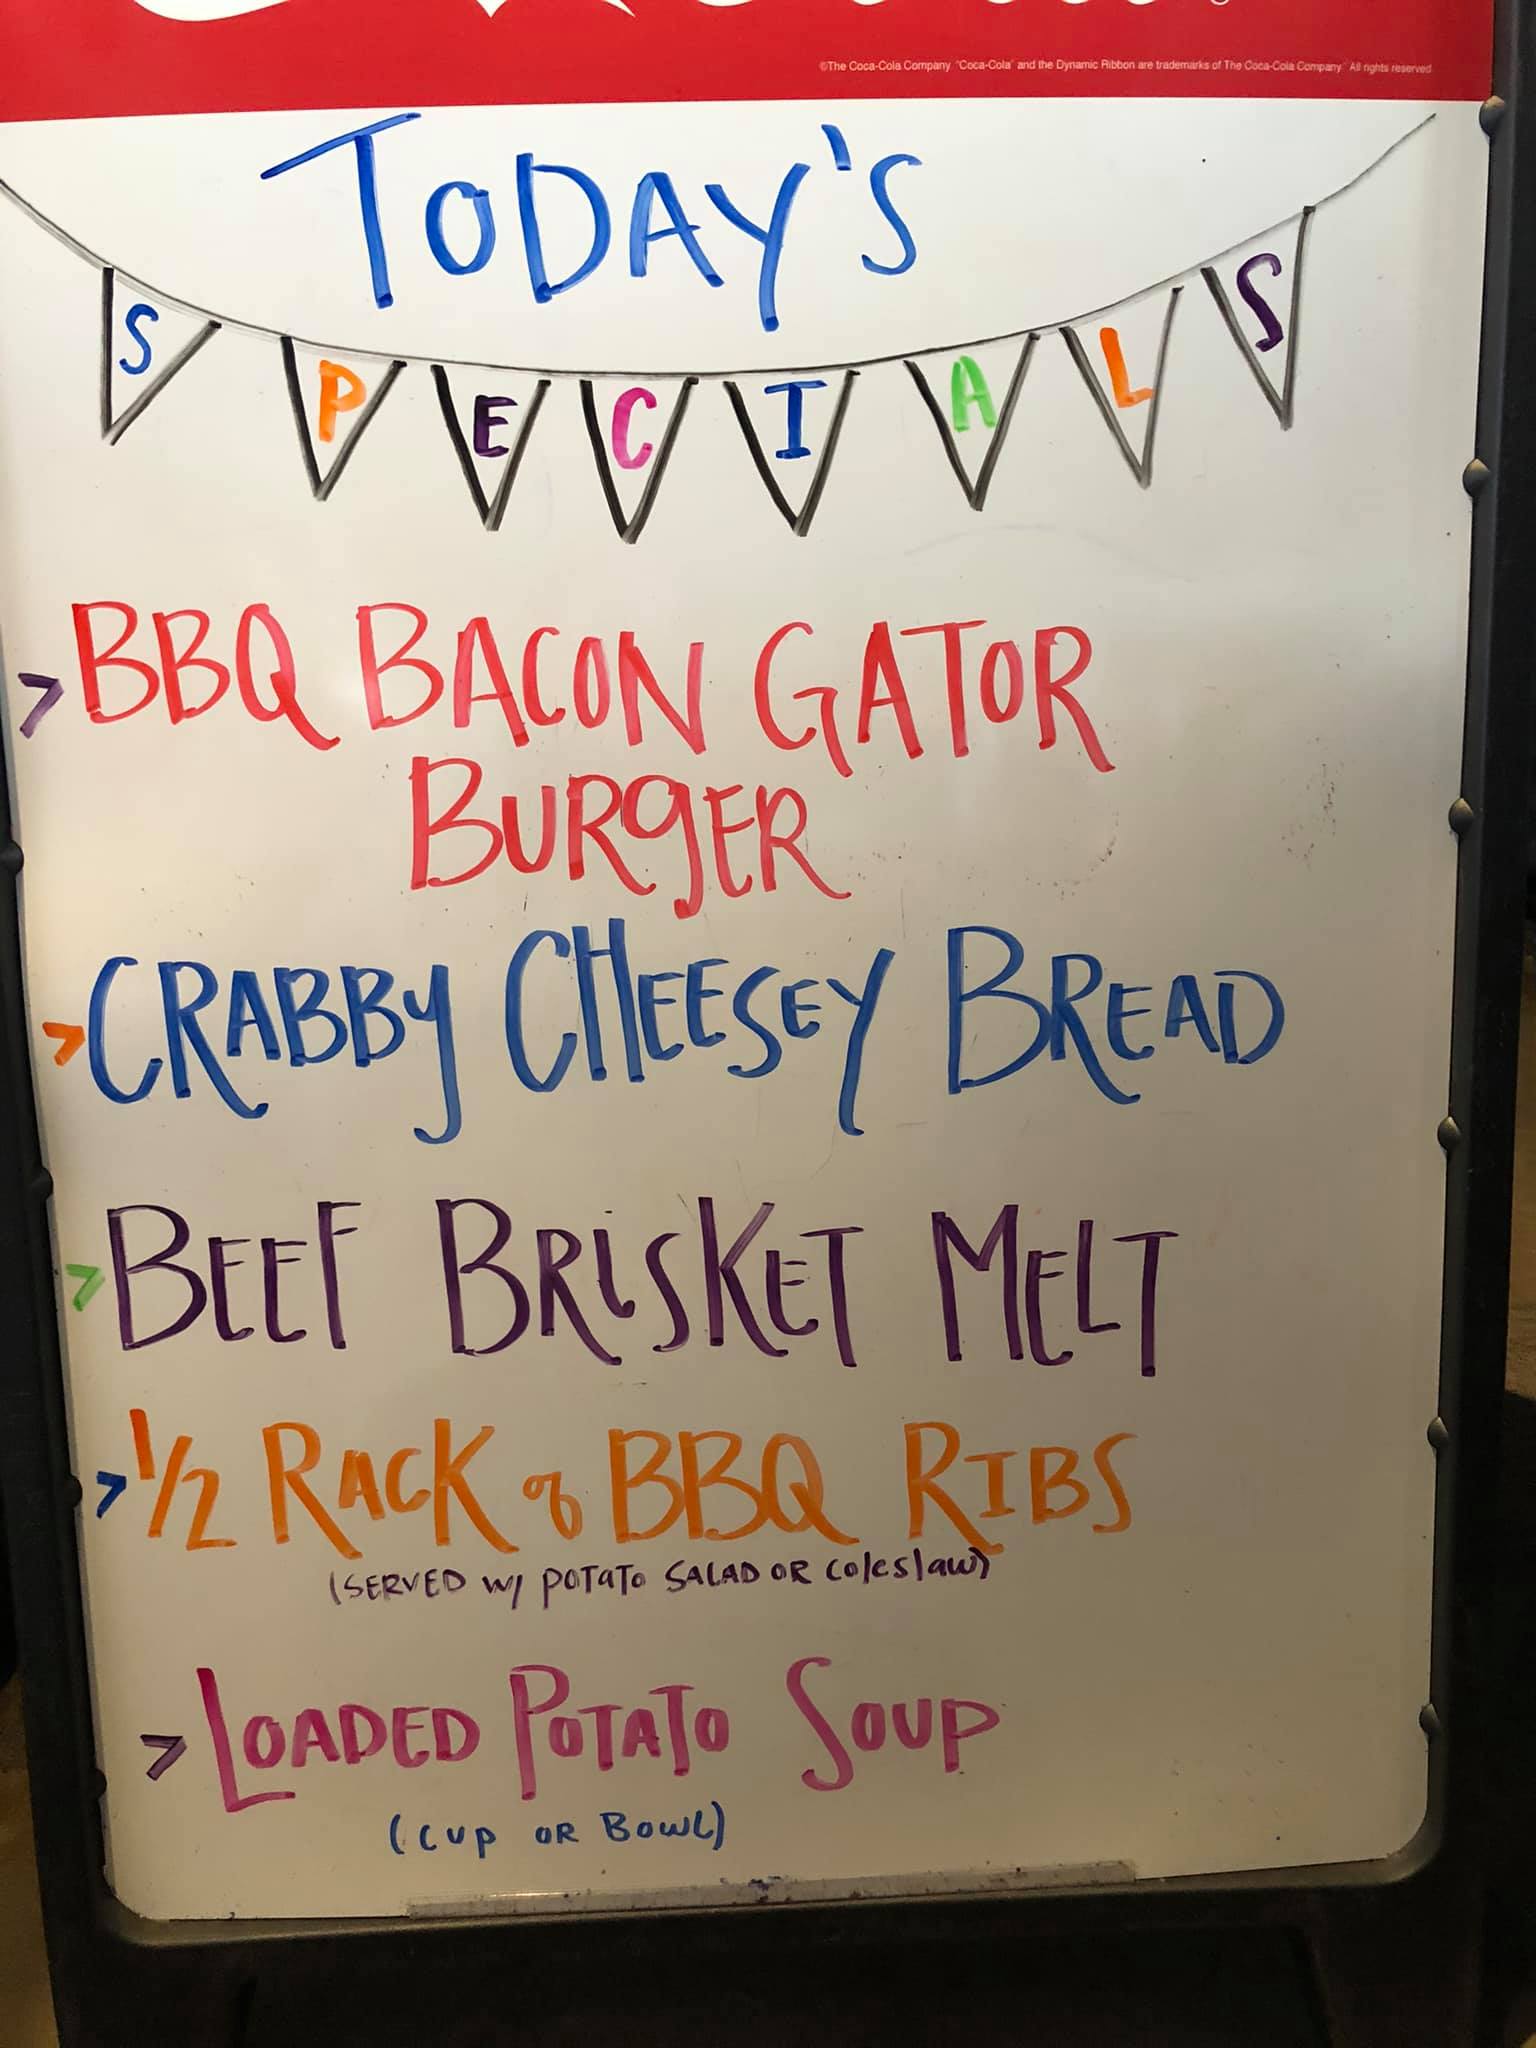 ©The Coca-Cola Company. "Coca-Cola" and the Dynamic Ribbon are trademarks of The Coca-Cola Company. All rights reserved.
TODAY'S
SPECIALS
> BBQ BACON GATOR
BURGER
> CRABBY CHEESEY BREAD
> BEEF BRISKET MELT
> 1/2 RACK of BBQ RIBS
(SERVED w/ POTATO SALAD OR coleslaw)
> LOADED POTATO SOUP
(CUP OR BOWL)